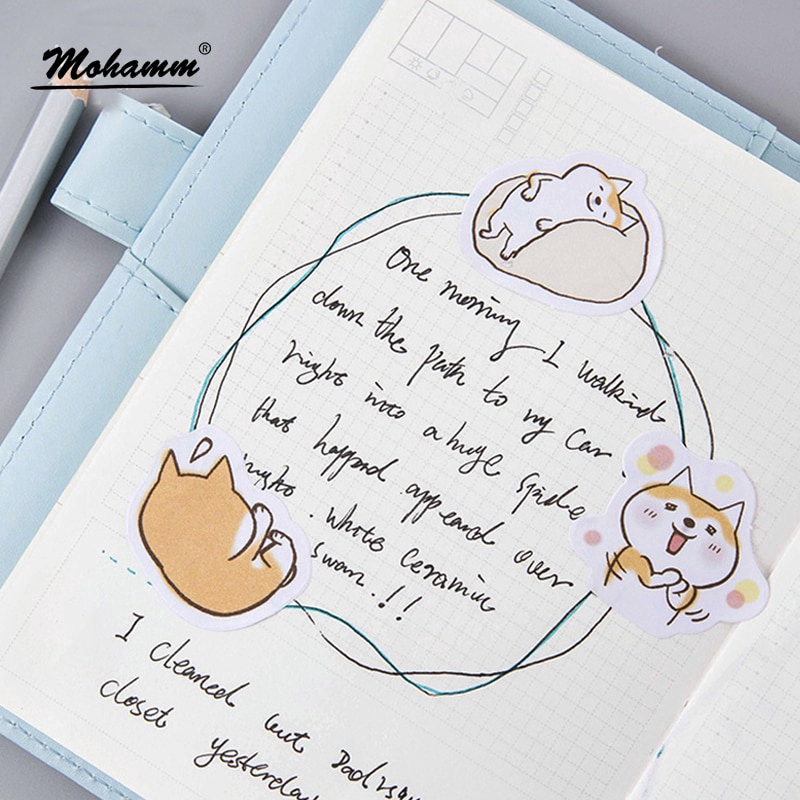 Mohamm®
One morning I walkind
down the path to my car
right into a huge spide
that happend appeand over
night. White Ceramic
Swan.!!
I cleaned out
closet yesterday